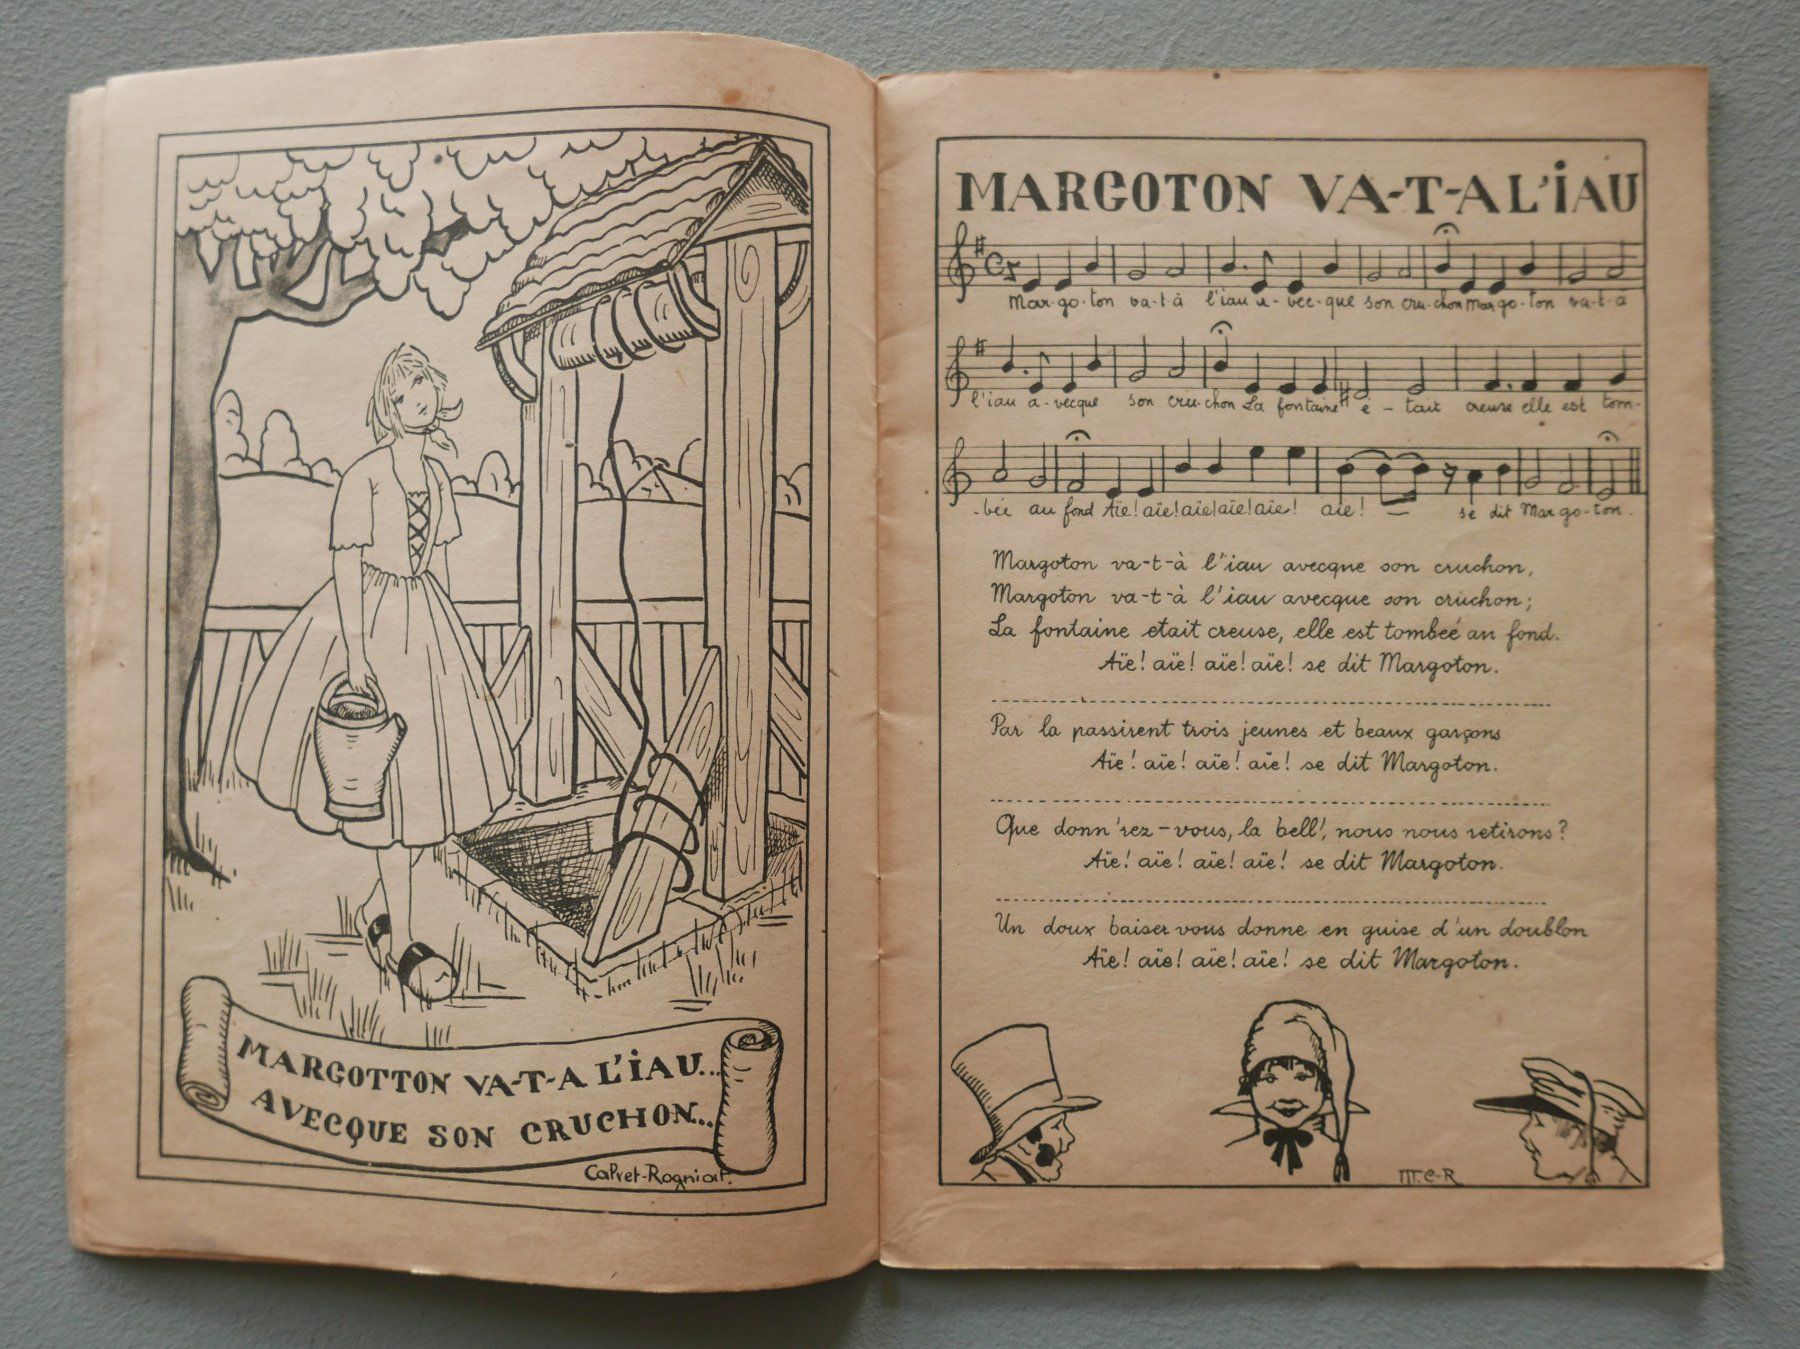 MARGOTTON VA-T-A L'IAU...
AVECQUE SON CRUCHON...
Calvet-Rogniat.
MARGOTON VA-T-A L'IAU
Mar-go-ton va-t-à l'iau a-vec-que son cru-chon Mar-go-ton va-t-a
l'iau a-vecque son cru-chon La fontaine é-tait creuse elle est tom-
-bée au fond Aïe! aïe! aïe! aïe! aïe! aïe! — se dit Mar go-ton.
Margoton va-t-à l'iau avecque son cruchon,
Margoton va-t-à l'iau avecque son cruchon;
La fontaine etait creuse, elle est tombeé au fond.
Aïe! aïe! aïe! aïe! se dit Margoton.
Par la passirent trois jeunes et beaux garçons
Aïe! aïe! aïe! aïe! se dit Margoton.
Que donn'rez-vous, la bell', nous nous retirons?
Aïe! aïe! aïe! aïe! se dit Margoton.
Un doux baiser vous donne en guise d'un doublon
Aïe! aïe! aïe! aïe! se dit Margoton.
M.C-R